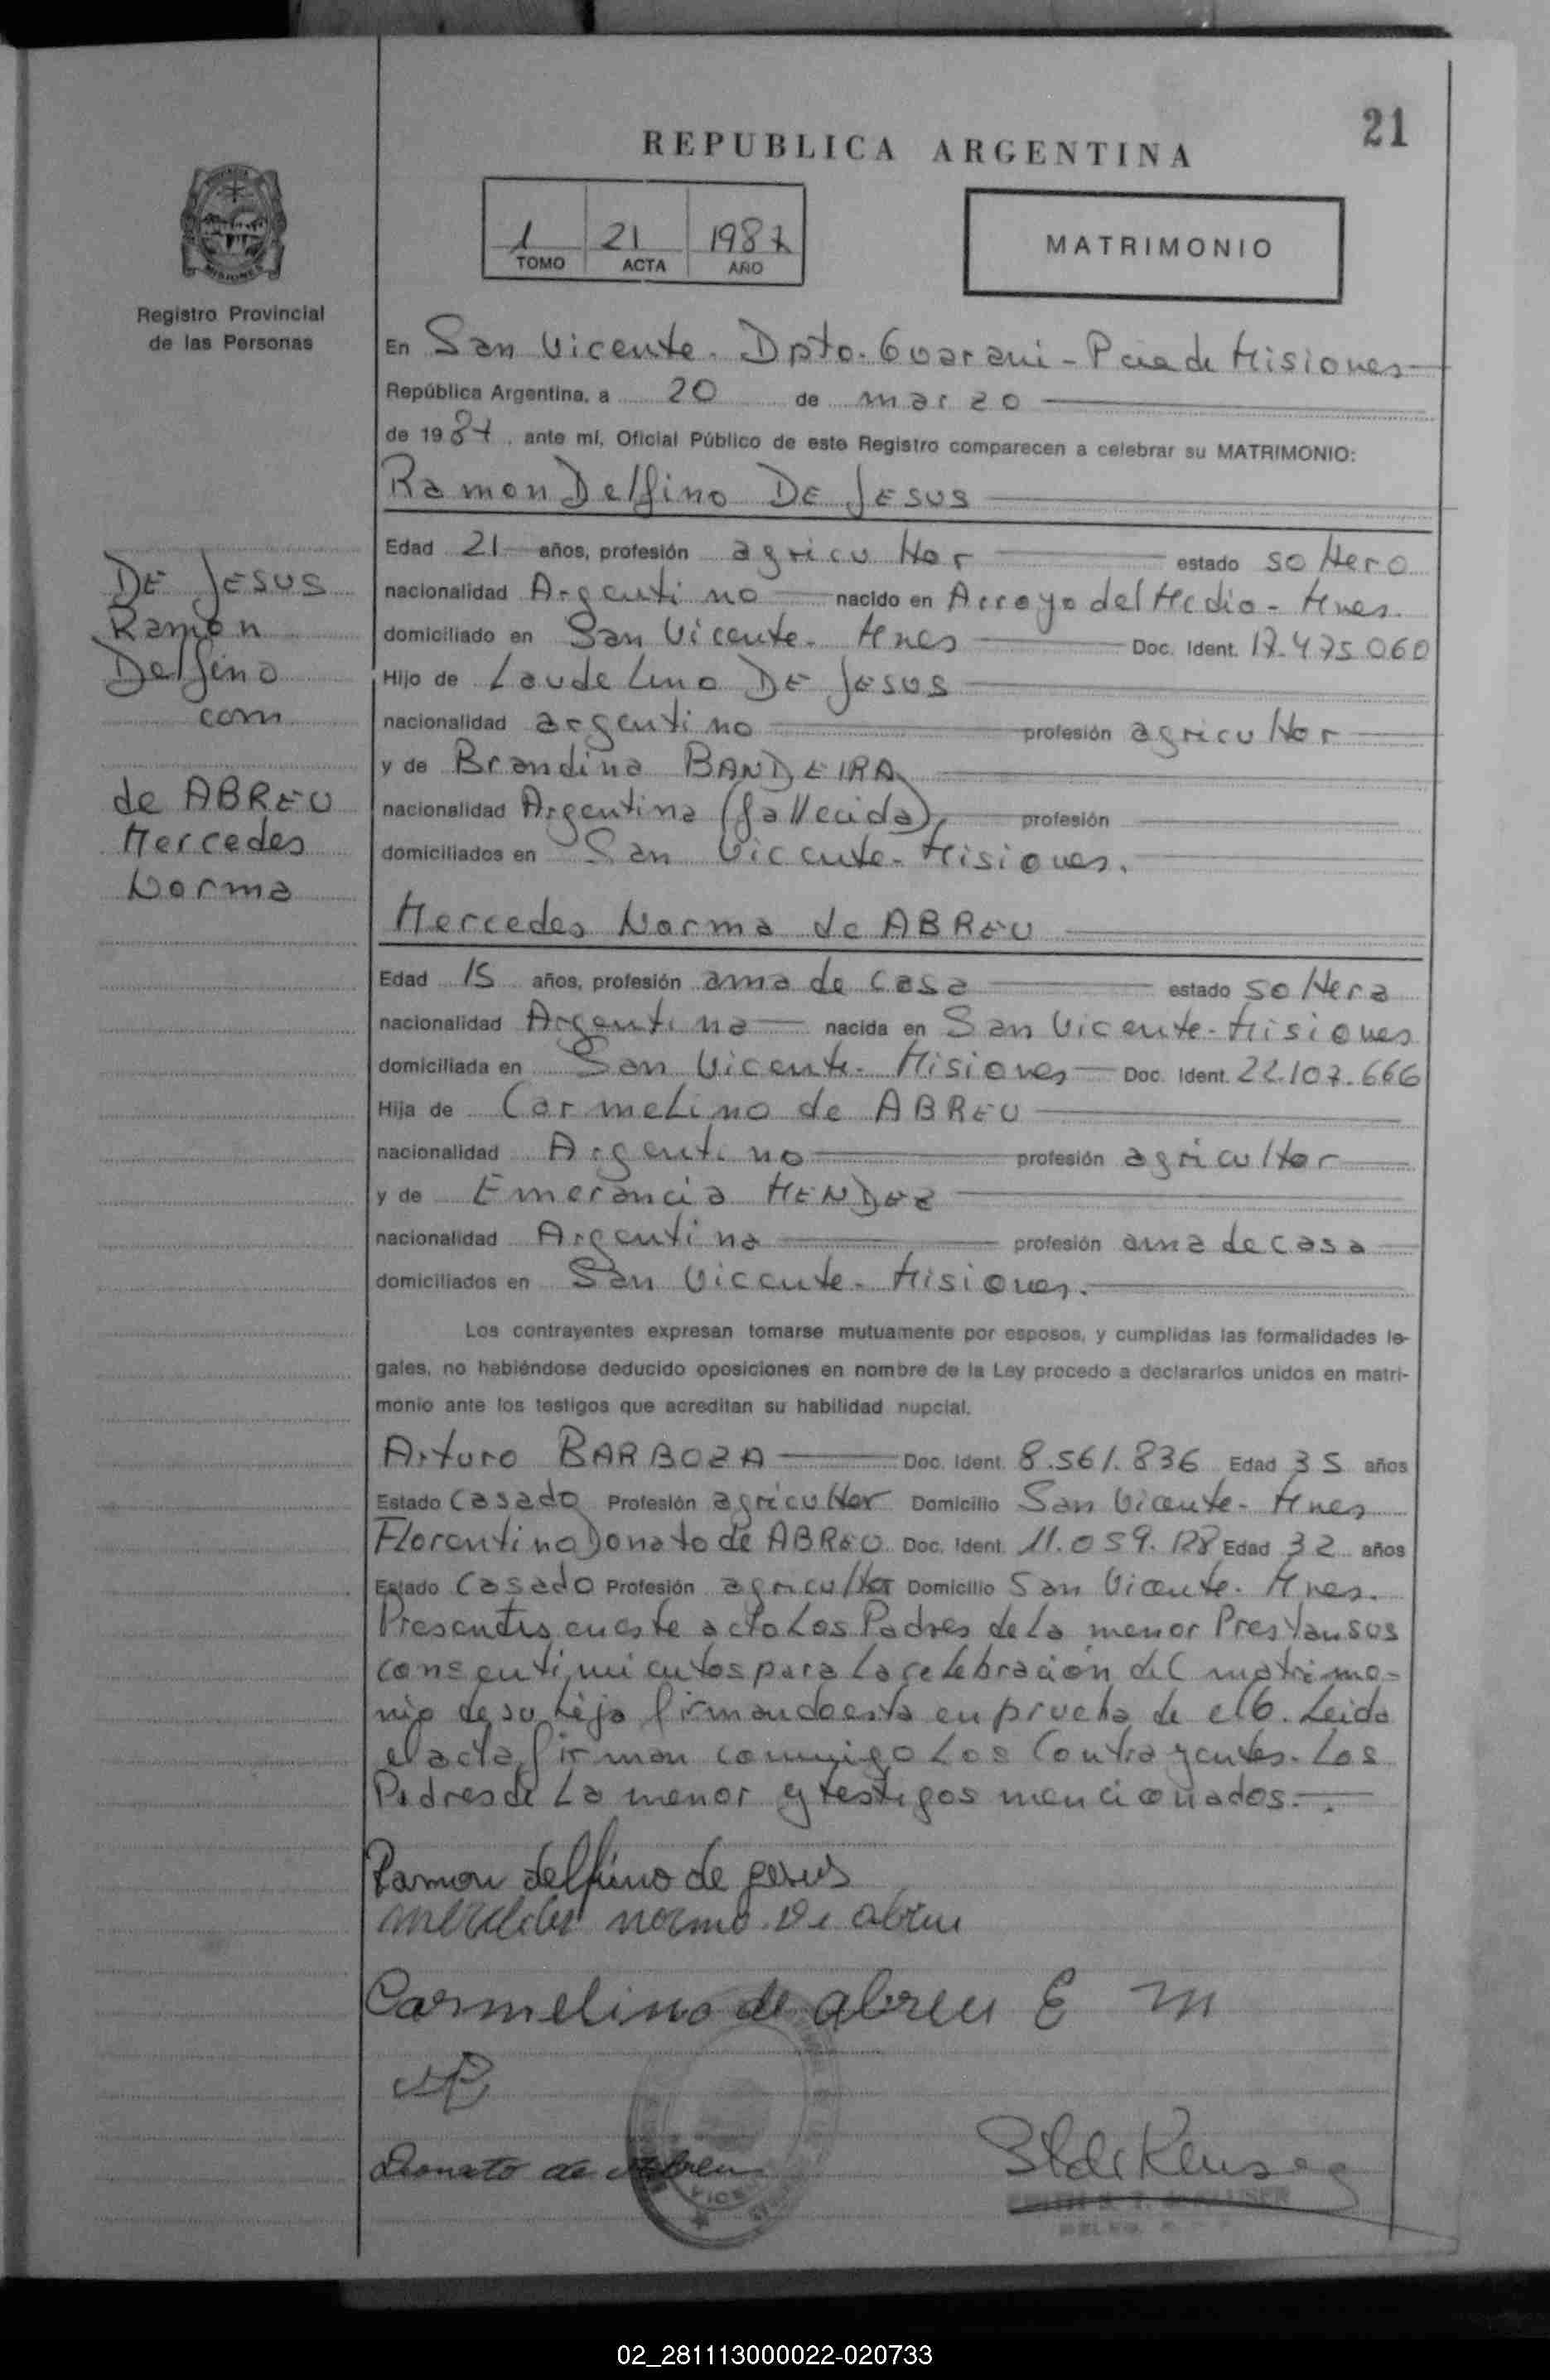 21
REPUBLICA ARGENTINA
1 21 1987
TOMO ACTA AÑO
MATRIMONIO
Registro Provincial
de las Personas
En San Vicente. Dpto. Guarani - Pcia de Misiones
República Argentina, a 20 de marzo
de 1987, ante mí, Oficial Público de este Registro comparecen a celebrar su MATRIMONIO:
Ramon Delfino DE JESUS
Edad 21 años, profesión agricultor estado soltero
nacionalidad Argentino nacido en Arroyo del Medio - Mnes.
domiciliado en San Vicente. Mnes Doc. Ident. 17.475.060
Hijo de Laudelino DE JESUS
nacionalidad argentino profesión agricultor
y de Brandina BANDEIRA
nacionalidad Argentina (fallecida) profesión
domiciliados en San Vicente - Misiones.
DE JESUS
Ramon
Delfino
com
de ABREU
Mercedes
Norma
Mercedes Norma de ABREU
Edad 15 años, profesión ama de casa estado soltera
nacionalidad Argentina nacida en San Vicente - Misiones
domiciliada en San Vicente - Misiones Doc. Ident. 22.107.666
Hija de Carmelino de ABREU
nacionalidad Argentino profesión agricultor
y de Emerancia MENDEZ
nacionalidad Argentina profesión ama de casa
domiciliados en San Vicente - Misiones.
Los contrayentes expresan tomarse mutuamente por esposos, y cumplidas las formalidades le-
gales, no habiéndose deducido oposiciones en nombre de la Ley procedo a declararlos unidos en matri-
monio ante los testigos que acreditan su habilidad nupcial.
Arturo BARBOZA Doc. Ident. 8.561.836 Edad 35 años
Estado Casado Profesión agricultor Domicilio San Vicente - Mnes
Florentino Donato de ABREU Doc. Ident. 11.059.128 Edad 32 años
Estado Casado Profesión agricultor Domicilio San Vicente. Mnes.
Presentes en este acto Los Padres de La menor Prestan sus
consentimientos para La celebración del matrimo-
nio de su hija firmando esta en prueba de ello. Leida
el acta firman conmigo Los Contrayentes. Los
Padres de La menor y testigos mencionados.
Ramon delfino de gesus
mercedes norma de abreu
Carmelino de abreu E m
Donato de Abreu
02_281113000022-020733